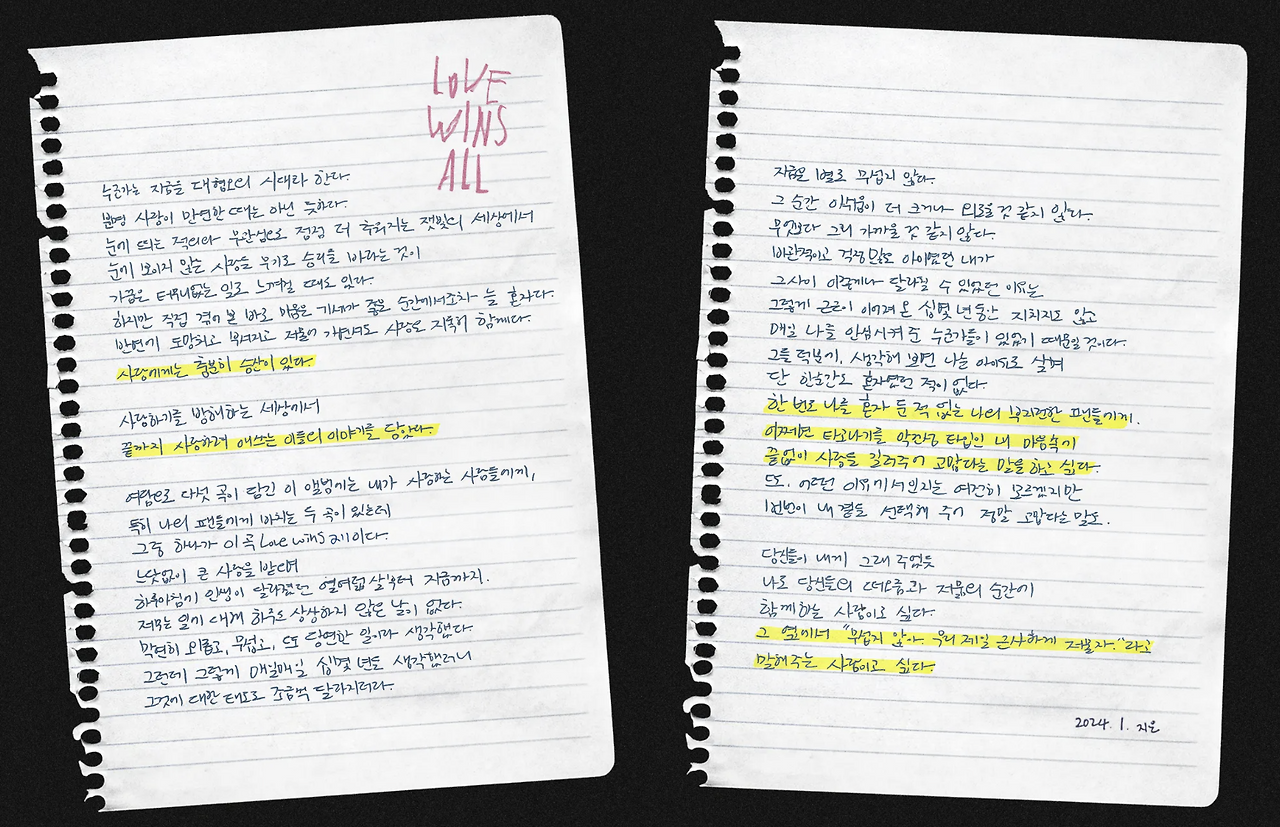 LOVE
WINS
ALL
누군가는 지금을 대혐오의 시대라 한다.
분명 사랑이 만연한 때는 아닌 듯하다.
눈에 띄는 적의와 무관심으로 점점 더 추워지는 잿빛의 세상에서
눈에 보이지 않는 사랑을 무기로 승리를 바라는 것이
가끔은 터무니없는 일로 느껴질 때도 있다.
하지만 직접 겪어 본 바로 미움은 기세가 좋은 순간에서조차 늘 혼자다.
반면에 도망치고 부서지고 저물어 가면서도 사랑은 지독히 함께다.
사랑에게는 충분히 승산이 있다.
사랑하기를 방해하는 세상에서
끝까지 사랑하려 애쓰는 이들의 이야기를 담았다.
여담으로 다섯 곡이 담긴 이 앨범에는 내가 사랑하는 사람들에게,
특히 나의 팬들에게 바치는 두 곡이 있는데
그중 하나가 이 곡 Love wins all이다.
느닷없이 큰 사랑을 받으며
하루아침에 인생이 달라졌던 열여덟 살부터 지금까지.
저무는 일에 대해 하루도 상상하지 않은 날이 없다.
막연히 외롭고, 무섭고, 또 당연한 일이라 생각했다.
그런데 그렇게 매일매일 십몇 년도 생각했더니
그것에 대한 태도도 조금씩 달라지더라.
지금은 별로 무섭지 않다.
그 순간 아쉬움이 더 크거나 외로울 것 같지 않다.
무엇보다 그리 가까울 것 같지 않다.
비관적이고 걱정 많은 아이였던 내가
그 사이 이렇게나 달라질 수 있었던 이유는
그렇게 근근이 이어져 온 십몇 년 동안 지치지도 않고
매일 나를 안심시켜 준 누군가들이 있었기 때문일 것이다.
그들 덕분에, 생각해 보면 나는 아이유로 살며
단 한순간도 혼자였던 적이 없다.
한 번도 나를 혼자 둔 적 없는 나의 부지런한 팬들에게.
어쩌면 타고나기를 악건성 타입인 내 마음속에
끝없이 사랑을 길러주어 고맙다는 말을 하고 싶다.
또. 어떤 이유에서인지는 여전히 모르겠지만
1번번이 내 곁을 선택해 주어 정말 고맙다는 말도.
당신들이 내게 그래 주었듯
나도 당신들의 떠오름과 저묾의 순간에
함께하는 사람이고 싶다.
그 옆에서 "무섭지 않아. 우리 제일 근사하게 저물자."라고
말해주는 사람이고 싶다.
2024. 1. 지은